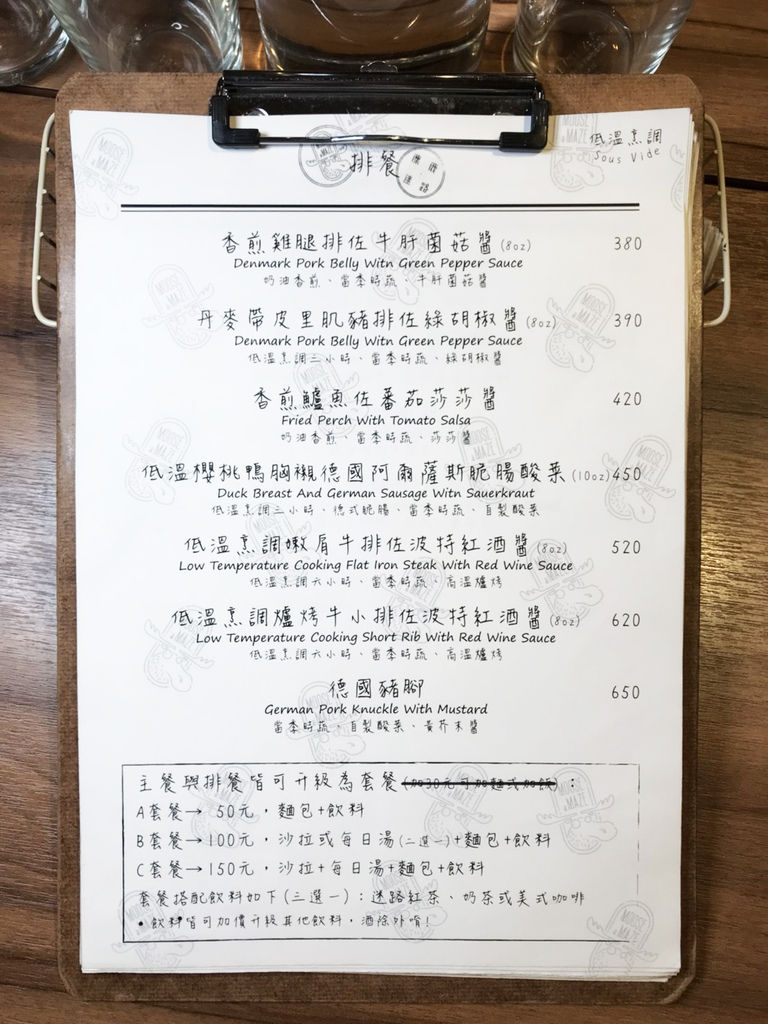 低溫烹調
Sous Vide
排餐
香煎雞腿排佐牛肝菌菇醬(8oz) 380
Denmark Pork Belly Witn Green Pepper Sauce
奶油香煎、當季時蔬、牛肝菌菇醬
丹麥帶皮里肌豬排佐綠胡椒醬(8oz) 390
Denmark Pork Belly Witn Green Pepper Sauce
低溫烹調三小時、當季時蔬、綠胡椒醬
香煎鱸魚佐蕃茄莎莎醬 420
Fried Perch With Tomato Salsa
奶油香煎、當季時蔬、莎莎醬
低溫櫻桃鴨胸襯德國阿爾薩斯脆腸酸菜(10oz) 450
Duck Breast And German Sausage Witn Sauerkraut
低溫烹調三小時、德式脆腸、當季時蔬、自製酸菜
低溫烹調嫩肩牛排佐波特紅酒醬(8oz) 520
Low Temperature Cooking Flat Iron Steak With Red Wine Sauce
低溫烹調六小時、當季時蔬、高溫爐烤
低溫烹調爐烤牛小排佐波特紅酒醬(8oz) 620
Low Temperature Cooking Short Rib With Red Wine Sauce
低溫烹調六小時、當季時蔬、高溫爐烤
德國豬腳 650
German Pork Knuckle With Mustard
當季時蔬、自製酸菜、黃芥末醬
主餐與排餐皆可升級為套餐(加30元可加麵或加飯)：
A套餐→ 50元，麵包+飲料
B套餐→100元，沙拉或每日湯(二選一)+麵包+飲料
C套餐→150元，沙拉+每日湯+麵包+飲料
套餐搭配飲料如下(三選一)：迷路紅茶、奶茶或美式咖啡
•飲料皆可加價升級其他飲料，酒除外唷!